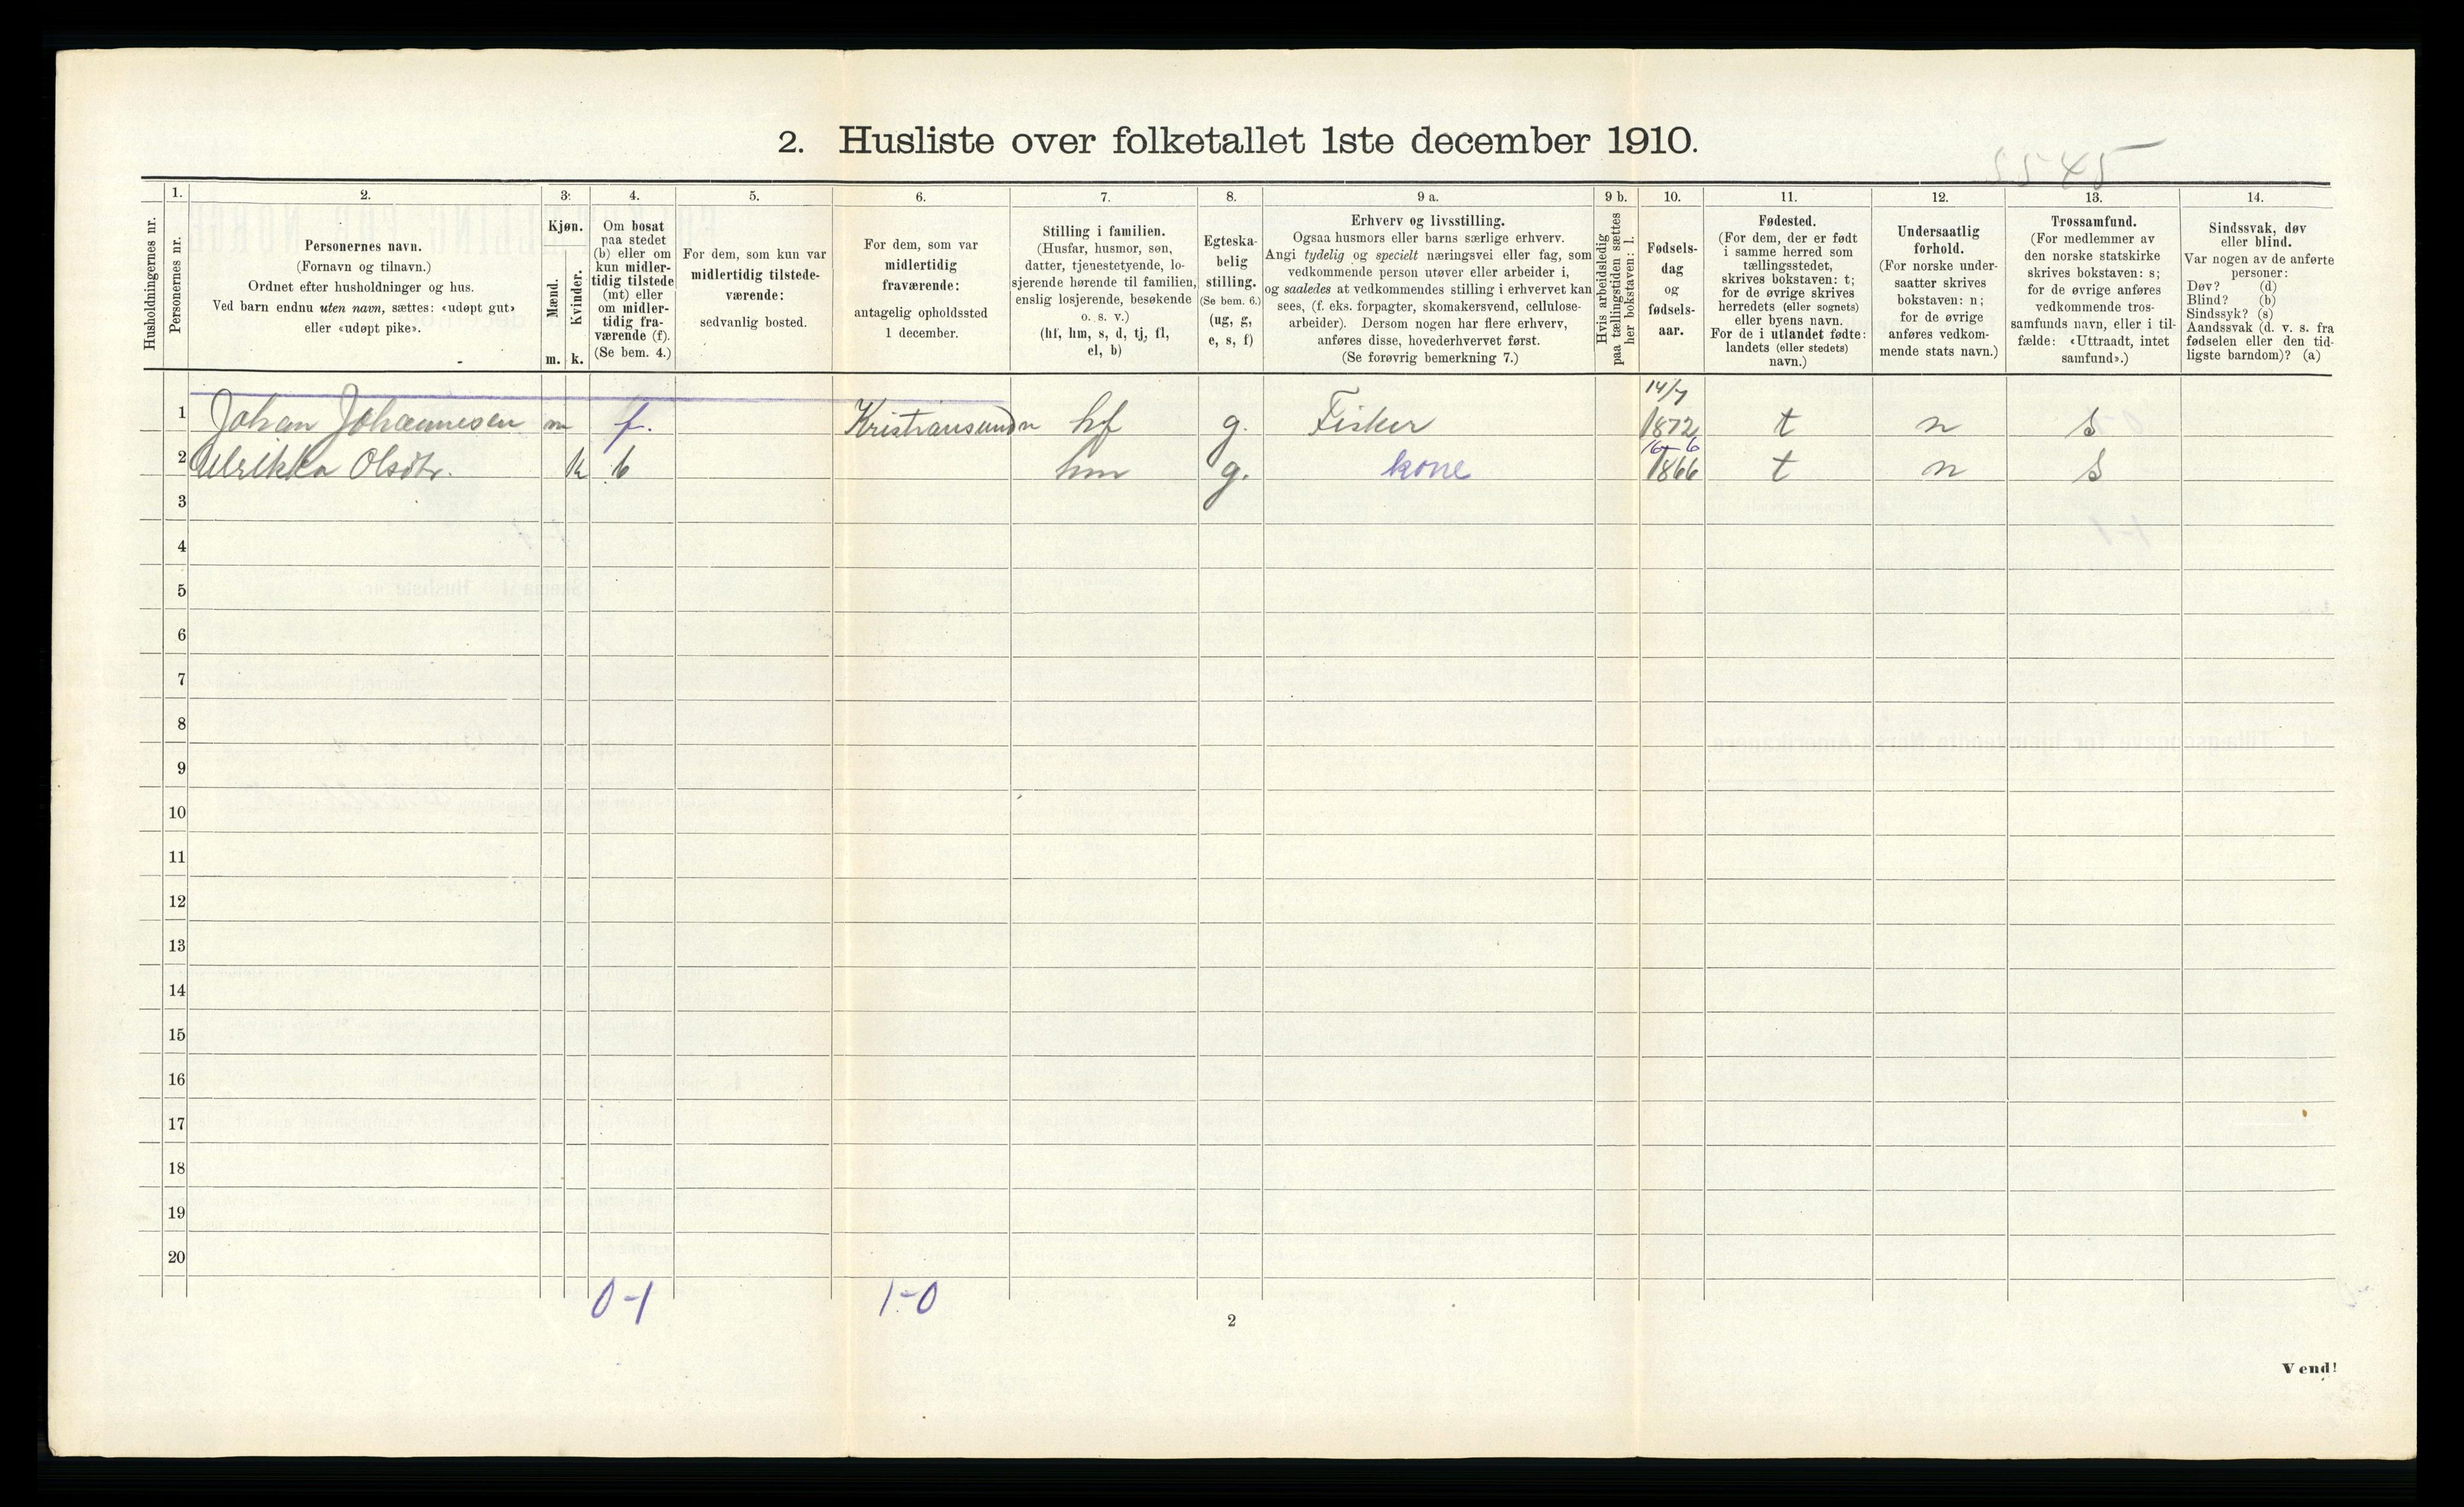 2. Husliste over folketallet 1ste december 1910.
Husholdningernes nr.
1.
Personernes nr.
2.
Personernes navn.
(Fornavn og tilnavn.)
Ordnet efter husholdninger og hus.
Ved barn endnu uten navn, sættes: «udøpt gut»
eller «udøpt pike».
3.
Kjøn.
Mænd.
Kvinder.
m. k.
4.
Om bosat
paa stedet
(b) eller om
kun midler-
tidig tilstede
(mt) eller
om midler-
tidig fra-
værende (f).
(Se bem. 4.)
5.
For dem, som kun var
midlertidig tilstede-
værende:
sedvanlig bosted.
6.
For dem, som var
midlertidig
fraværende:
antagelig opholdssted
1 december.
7.
Stilling i familien.
(Husfar, husmor, søn,
datter, tjenestetyende, lo-
sjerende hørende til familien,
enslig losjerende, besøkende
o. s. v.)
(hf, hm, s, d, tj, fl,
el, b)
8.
Egteska-
belig
stilling.
(Se bem. 6.)
(ug, g,
e, s, f)
9 a.
Erhverv og livsstilling.
Ogsaa husmors eller barns særlige erhverv.
Angi tydelig og specielt næringsvei eller fag, som
vedkommende person utøver eller arbeider i,
og saaledes at vedkommendes stilling i erhvervet kan
sees, (f. eks. forpagter, skomakersvend, cellulose-
arbeider). Dersom nogen har flere erhverv,
anføres disse, hovederhvervet først.
(Se forøvrig bemerkning 7.)
9 b.
Hvis arbeidsledig
paa tællingstiden sættes
her bokstaven: l.
10.
Fødsels-
dag
og
fødsels-
aar.
11.
Fødested.
(For dem, der er født
i samme herred som
tællingsstedet,
skrives bokstaven: t;
for de øvrige skrives
herredets (eller sognets)
eller byens navn.
For de i utlandet fødte:
landets (eller stedets)
navn.)
12.
Undersaatlig
forhold.
(For norske under-
saatter skrives
bokstaven: n;
for de øvrige
anføres vedkom-
mende stats navn.)
13.
Trossamfund.
(For medlemmer av
den norske statskirke
skrives bokstaven: s;
for de øvrige anføres
vedkommende tros-
samfunds navn, eller i til-
fælde: «Uttraadt, intet
samfund».)
14.
Sindssvak, døv
eller blind.
Var nogen av de anførte
personer:
Døv? (d)
Blind? (b)
Sindssyk? (s)
Aandssvak (d. v. s. fra
fødselen eller den tid-
ligste barndom)? (a)
14/7
1 Johan Johannesen m f. Kristiansund n hf g. Fisker 1872 t n s
16-6
2 Ulrikka Olsdtr. k b hm g. kone 1866 t n s
3
4
5
6
7
8
9
10
11
12
13
14
15
16
17
18
19
20
0-1 1-0
2
Vend!